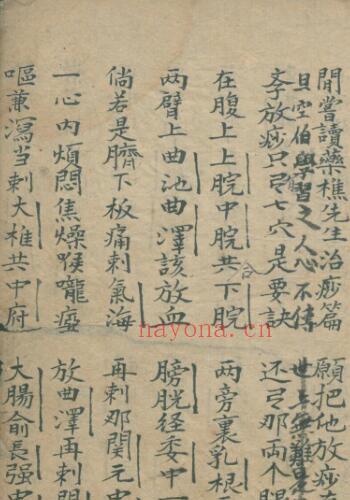 閒嘗讀藥樵先生治痧篇
願把他放痧
且空伯學習之人心不
世上
放痧只
七穴是要訣
还
那两个
在腹上上脘中脘共下脘
两旁裏乳根
两臂上曲池曲澤該放血
膀胱经委中
倘若是臍下板痛刺氣海
再刺那関元
一心内煩悶焦燥喉嚨
放曲澤再刺
嘔兼瀉当刺大椎共中府
大腸俞長强
nayona.cn